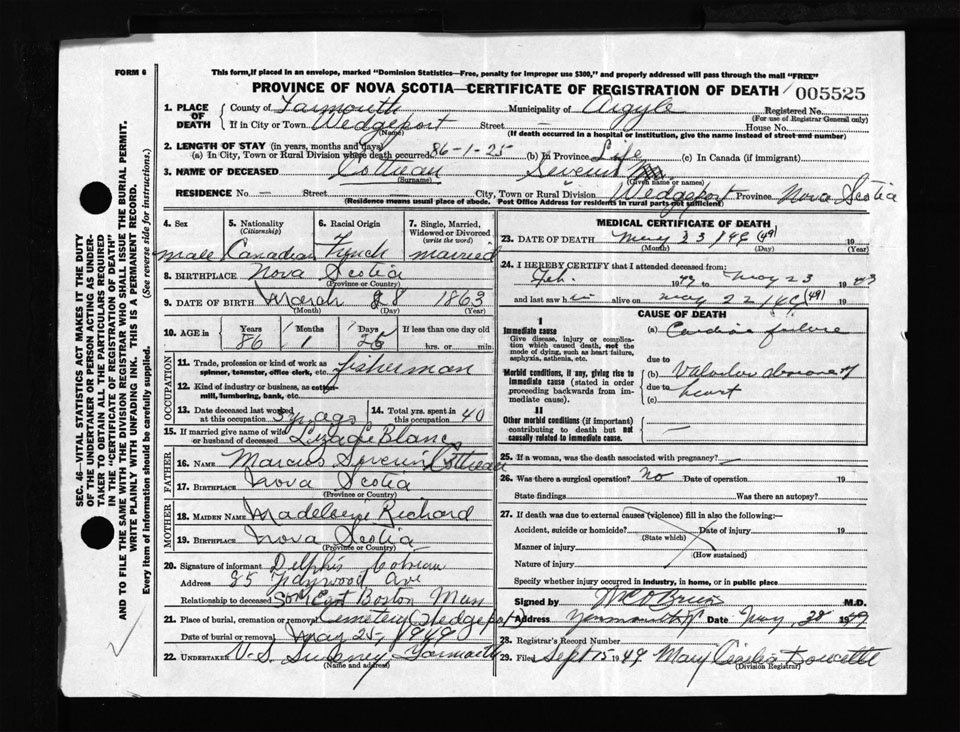 FORM 6
This form, if placed in an envelope, marked "Dominion Statistics—Free, penalty for improper use $300," and properly addressed will pass through the mail "FREE"
PROVINCE OF NOVA SCOTIA—CERTIFICATE OF REGISTRATION OF DEATH
005525
1. PLACE OF DEATH
County of Yarmouth Municipality of Argyle Registered No.
(For use of Registrar General only)
If in City or Town Wedgeport Street — House No.
(Name) (If death occurred in a hospital or institution, give the name instead of street and number)
2. LENGTH OF STAY (in years, months and days)
(a) In City, Town or Rural Division where death occurred 86-1-25 (b) In Province Life (c) In Canada (if immigrant)
3. NAME OF DECEASED Cottreau Severin
(Surname) (Given name or names)
RESIDENCE No. — Street City, Town or Rural Division Wedgeport Province Nova Scotia
(Residence means usual place of abode. Post Office Address for residents in rural parts not sufficient)
4. Sex
male
5. Nationality
(Citizenship)
Canadian
6. Racial Origin
French
7. Single, Married, Widowed or Divorced
(write the word)
married
8. BIRTHPLACE Nova Scotia
(Province or Country)
9. DATE OF BIRTH March 28 1863
(Month) (Day) (Year)
10. AGE in
Years Months Days If less than one day old
86 1 25 hrs. or min.
OCCUPATION
11. Trade, profession or kind of work as spinner, teamster, office clerk, etc. fisherman
12. Kind of industry or business, as cotton-mill, lumbering, bank, etc.
13. Date deceased last worked at this occupation yr. ago
14. Total yrs. spent in this occupation 40
15. If married give name of wife or husband of deceased Liza LeBlanc
FATHER
16. NAME Marcus Severin Cottreau
17. BIRTHPLACE Nova Scotia
(Province or Country)
MOTHER
18. MAIDEN NAME Richard
19. BIRTHPLACE Nova Scotia
(Province or Country)
20. Signature of informant Delphis Cotreau
Address 85 Ave
Relationship to deceased Son East Boston Mass
21. Place of burial, cremation or removal Cemetery Wedgeport
Date of burial or removal May 25 - 1949
22. UNDERTAKER V.S. Sweeney Yarmouth
(Name and address)
MEDICAL CERTIFICATE OF DEATH
23. DATE OF DEATH May 23 / 49 (49) 19
(Month) (Day) (Year)
24. I HEREBY CERTIFY that I attended deceased from:
Feb. 19 to May 23 19
and last saw him alive on May 22 / 49 (49) 19
CAUSE OF DEATH
I
Immediate cause
Give disease, injury or complication which caused death, not the mode of dying, such as heart failure, asphyxia, asthenia, etc.
(a) Cardiac failure
due to
Morbid conditions, if any, giving rise to immediate cause (stated in order proceeding backwards from immediate cause).
(b) Valvular disease of
due to
heart
(c)
II
Other morbid conditions (if important) contributing to death but not causally related to immediate cause.
—
25. If a woman, was the death associated with pregnancy? —
26. Was there surgical operation? No Date of operation 19
State findings Was there an autopsy?
27. If death was due to external causes (violence) fill in also the following:—
Accident, suicide or homicide? Date of injury 19
(State which)
Manner of injury
(How sustained)
Nature of injury
Specify whether injury occurred in industry, in home, or in public place
Signed by O'Brien M.D.
Address Yarmouth NS Date May 28 1949
28. Registrar's Record Number
29. Filed Sept 15 1949 Mary Cecilia Doucette
(Division Registrar)
SEC. 46—VITAL STATISTICS ACT MAKES IT THE DUTY
OF THE UNDERTAKER OR PERSON ACTING AS UNDER-
TAKER TO OBTAIN ALL THE PARTICULARS REQUIRED
IN THE "CERTIFICATE OF REGISTRATION OF DEATH"
AND TO FILE THE SAME WITH THE DIVISION REGISTRAR WHO SHALL ISSUE THE BURIAL PERMIT.
WRITE PLAINLY WITH UNFADING INK. THIS IS A PERMANENT RECORD.
Every item of information should be carefully supplied. (See reverse side for instructions.)